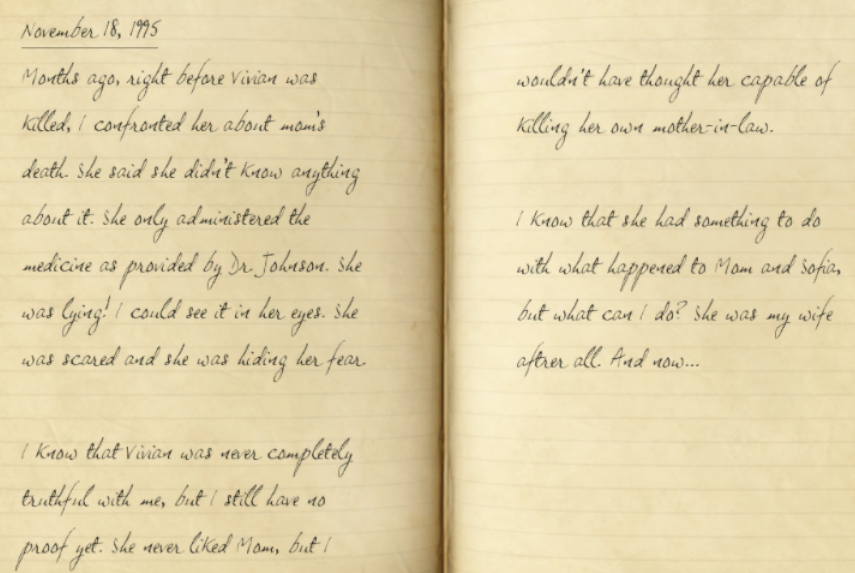 November 18, 1995
Months ago, right before Vivian was
killed, I confronted her about mom's
death. She said she didn't know anything
about it. She only administered the
medicine as provided by Dr. Johnson. She
was lying! I could see it in her eyes. She
was scared and she was hiding her fear.
I know that Vivian was never completely
truthful with me, but I still have no
proof yet. She never liked Mom, but I
wouldn't have thought her capable of
killing her own mother-in-law.
I know that she had something to do
with what happened to Mom and Sofia,
but what can I do? She was my wife
aftrer all. And now...